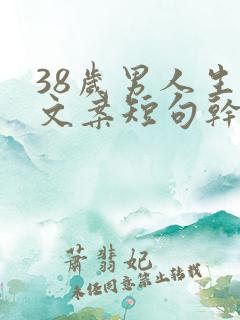 38歲男人生
文案短句幹
蕭翡妃
未任同意禁止转载